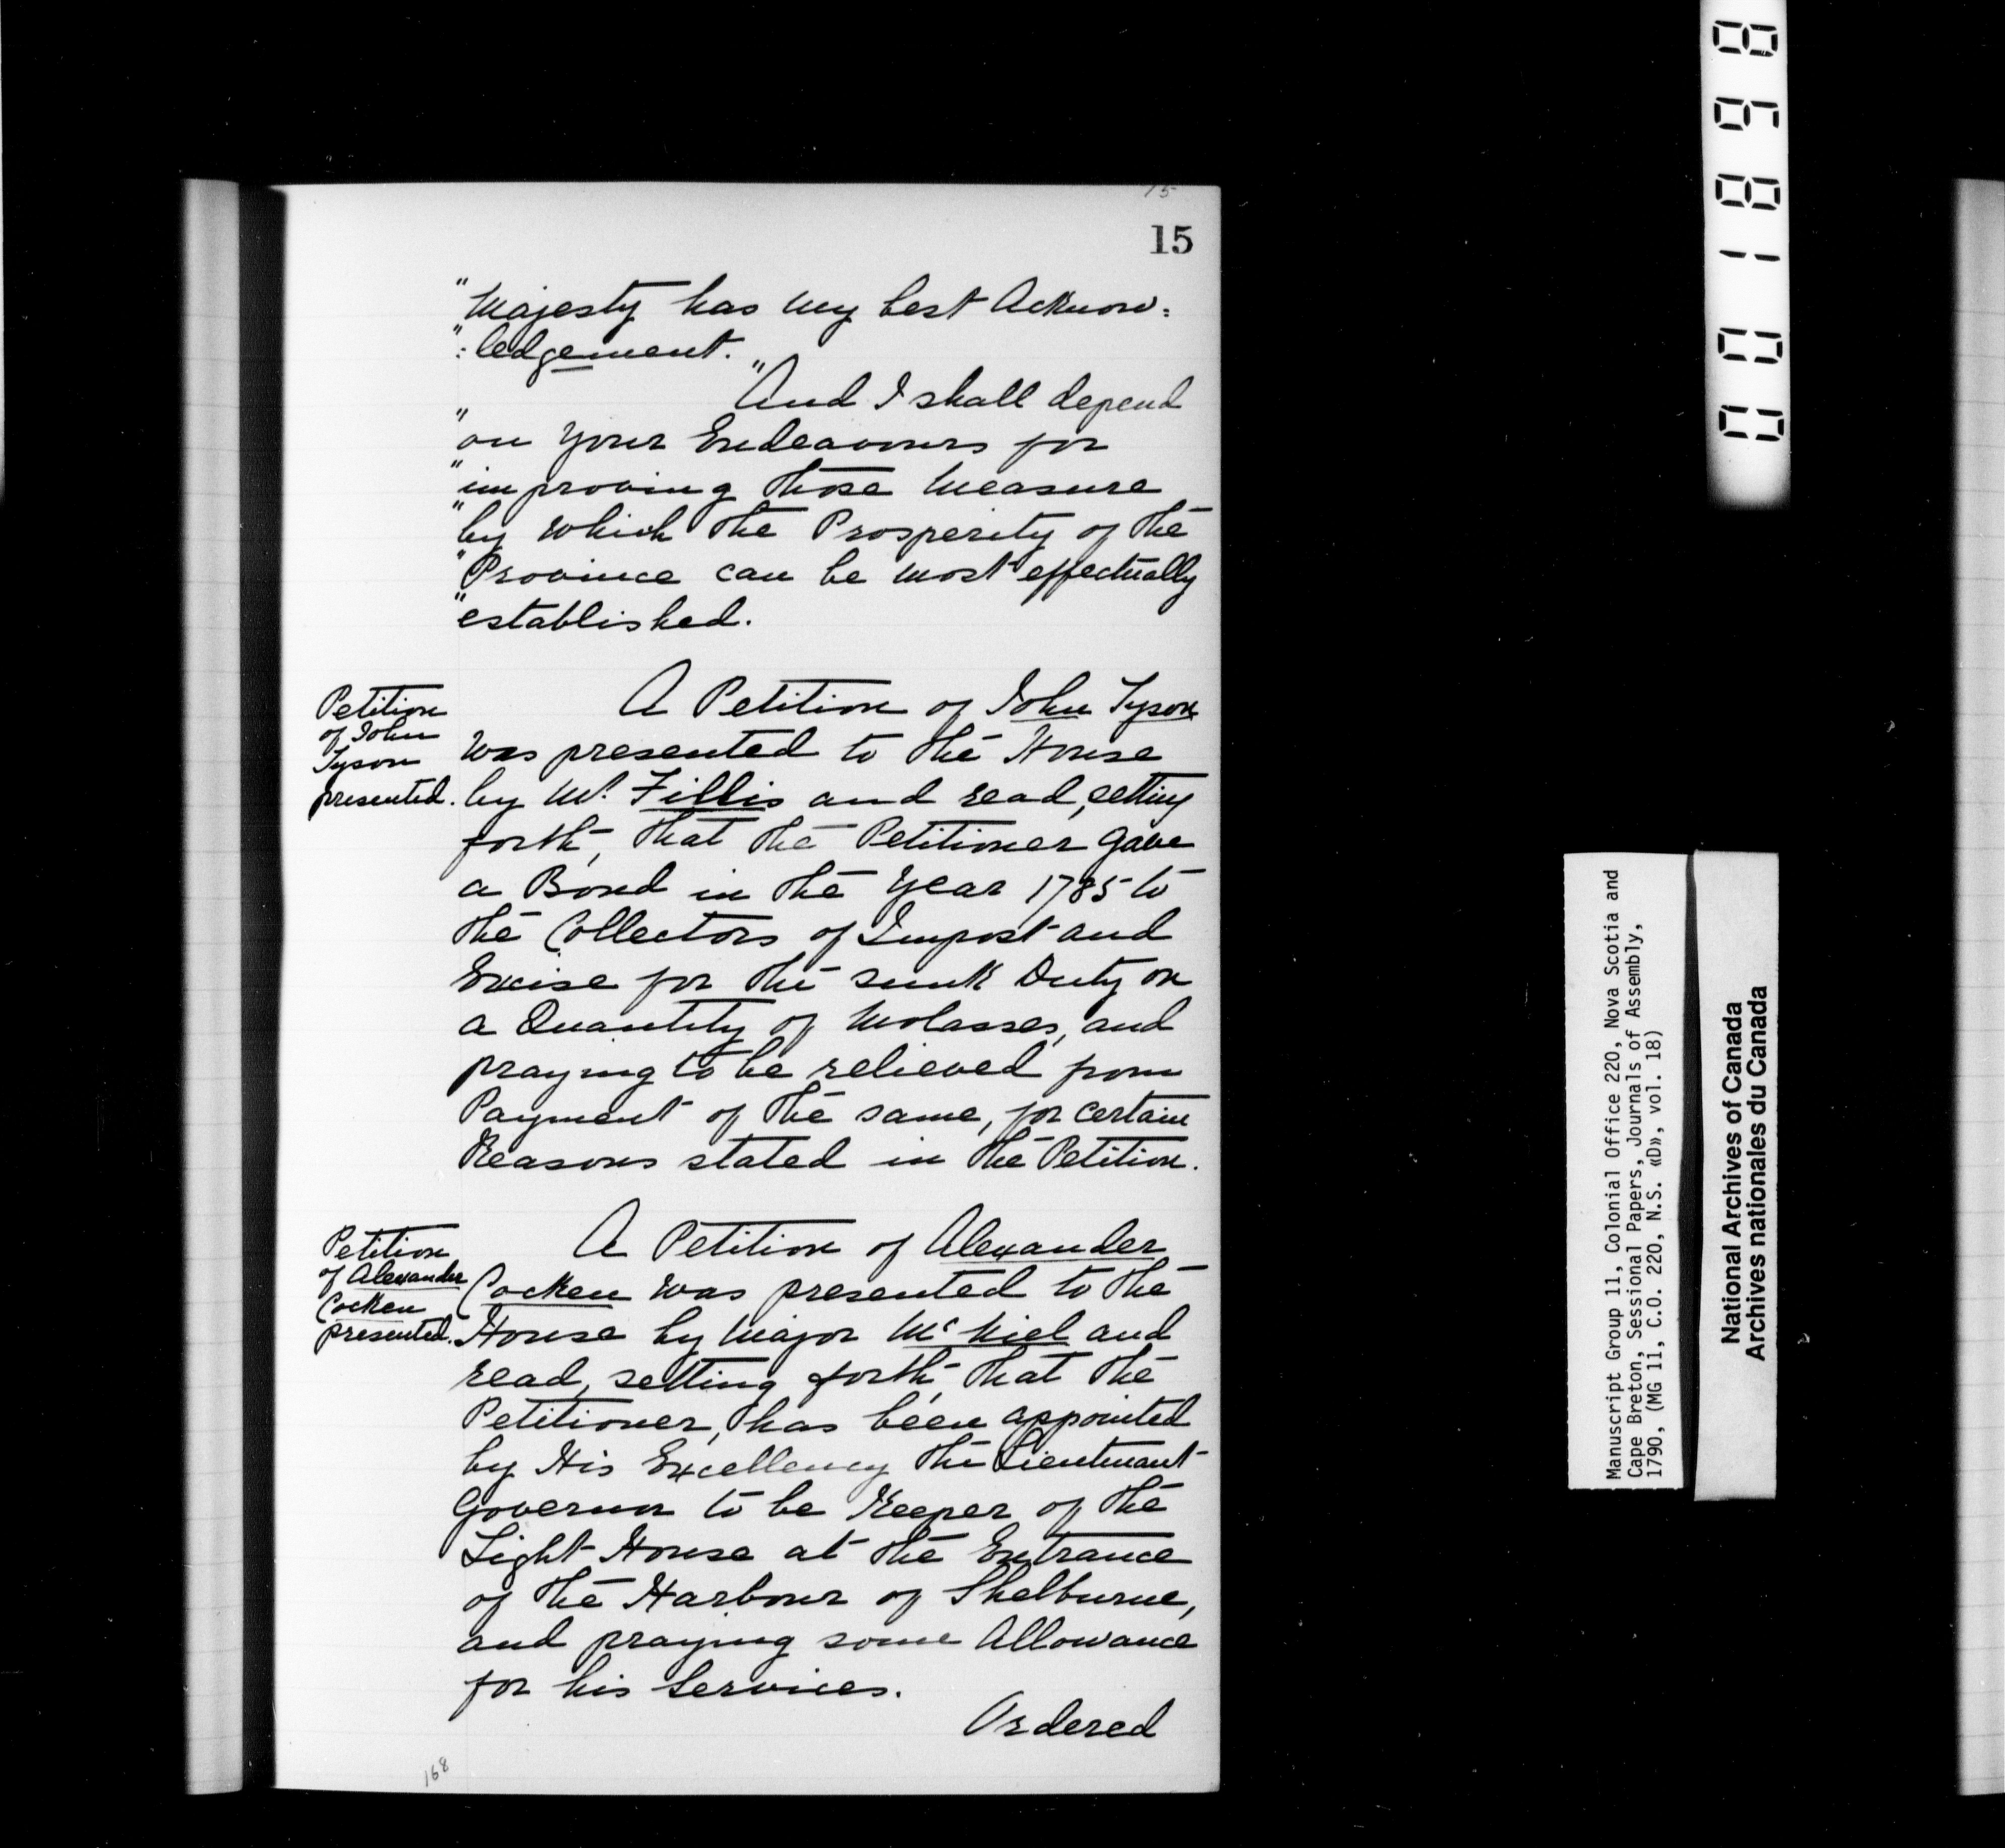 15
15
"Majesty has my best Acknow:
":ledgement.
"And I shall depend
"on your Endeavours for
"improving those Measure
"by which the Prosperity of the
"Province can be most effectually
"established.
Petition
of John
Tyson
presented.
A Petition of John Tyson
was presented to the House
by Mr. Fillis and read, setting
forth, that the Petitioner gave
a Bond in the Year 1785 to
the Collectors of Impost and
Excise for the sunk Duty on
a Quantity of Molasses, and
praying to be relieved from
Payment of the same, for certain
Reasons stated in the Petition.
Petition
of Alexander
Cocken
presented.
A Petition of Alexander
Cocken was presented to the
House by Major McNiel and
read, setting forth, that the
Petitioner, has been appointed
by His Excellency the Lieutenant
Governor to be Keeper of the
Light House at the Entrance
of the Harbour of Shelburne,
and praying some Allowance
for his Services.
Ordered
168
001898
Manuscript Group 11, Colonial Office 220, Nova Scotia and
Cape Breton, Sessional Papers, Journals of Assembly,
1790, (MG 11, C.O. 220, N.S. «D», vol. 18)
National Archives of Canada
Archives nationales du Canada